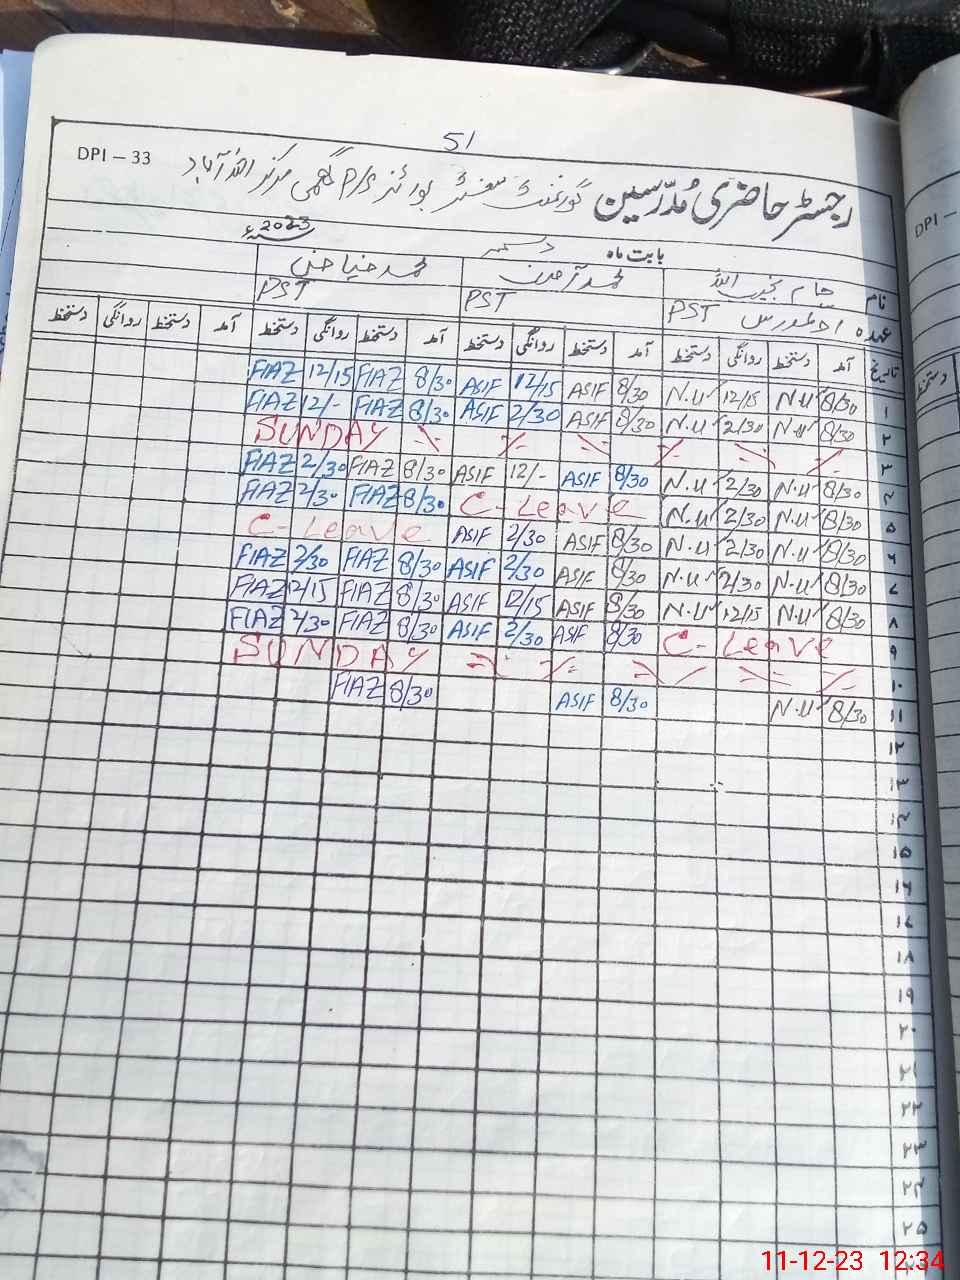 51
DPI – 33
رجسٹر حاضری مُدرّسین گورنمنٹ سنٹر بوائز P/S
2023ء
بابت ماہ دسمبر
نام
محمد
محمد
عہدہ
PST
PST
PST
تاریخ آمد دستخط روانگی دستخط آمد دستخط روانگی دستخط آمد دستخط روانگی دستخط آمد دستخط روانگی دستخط
۱ 8/30 N.U 12/15 N.U 8/30 ASIF 12/15 ASIF 8/30 FIAZ 12/15 FIAZ
۲ 8/30 N.U 2/30 N.U 8/30 ASIF 2/30 ASIF 8/30 FIAZ 12/- FIAZ
۳ SUNDAY
۴ 8/30 N.U 2/30 N.U 8/30 ASIF 12/- ASIF 8/30 FIAZ 2/30 FIAZ
۵ 8/30 N.U 2/30 N.U C-Leave 8/30 FIAZ 2/30 FIAZ
۶ 8/30 N.U 2/30 N.U 8/30 ASIF 2/30 ASIF C-Leave
۷ 8/30 N.U 2/30 N.U 8/30 ASIF 2/30 ASIF 8/30 FIAZ 2/30 FIAZ
۸ 8/30 N.U 12/15 N.U 8/30 ASIF 12/15 ASIF 8/30 FIAZ 2/15 FIAZ
۹ C-Leave 8/30 ASIF 2/30 ASIF 8/30 FIAZ 2/30 FIAZ
۱۰ SUNDAY
۱۱ 8/30 N.U 8/30 ASIF 8/30 FIAZ
۱۲
۱۳
۱۴
۱۵
۱۶
۱۷
۱۸
۱۹
۲۰
۲۱
۲۲
۲۳
۲۴
۲۵
11-12-23 12:34
DPI –
دستخط